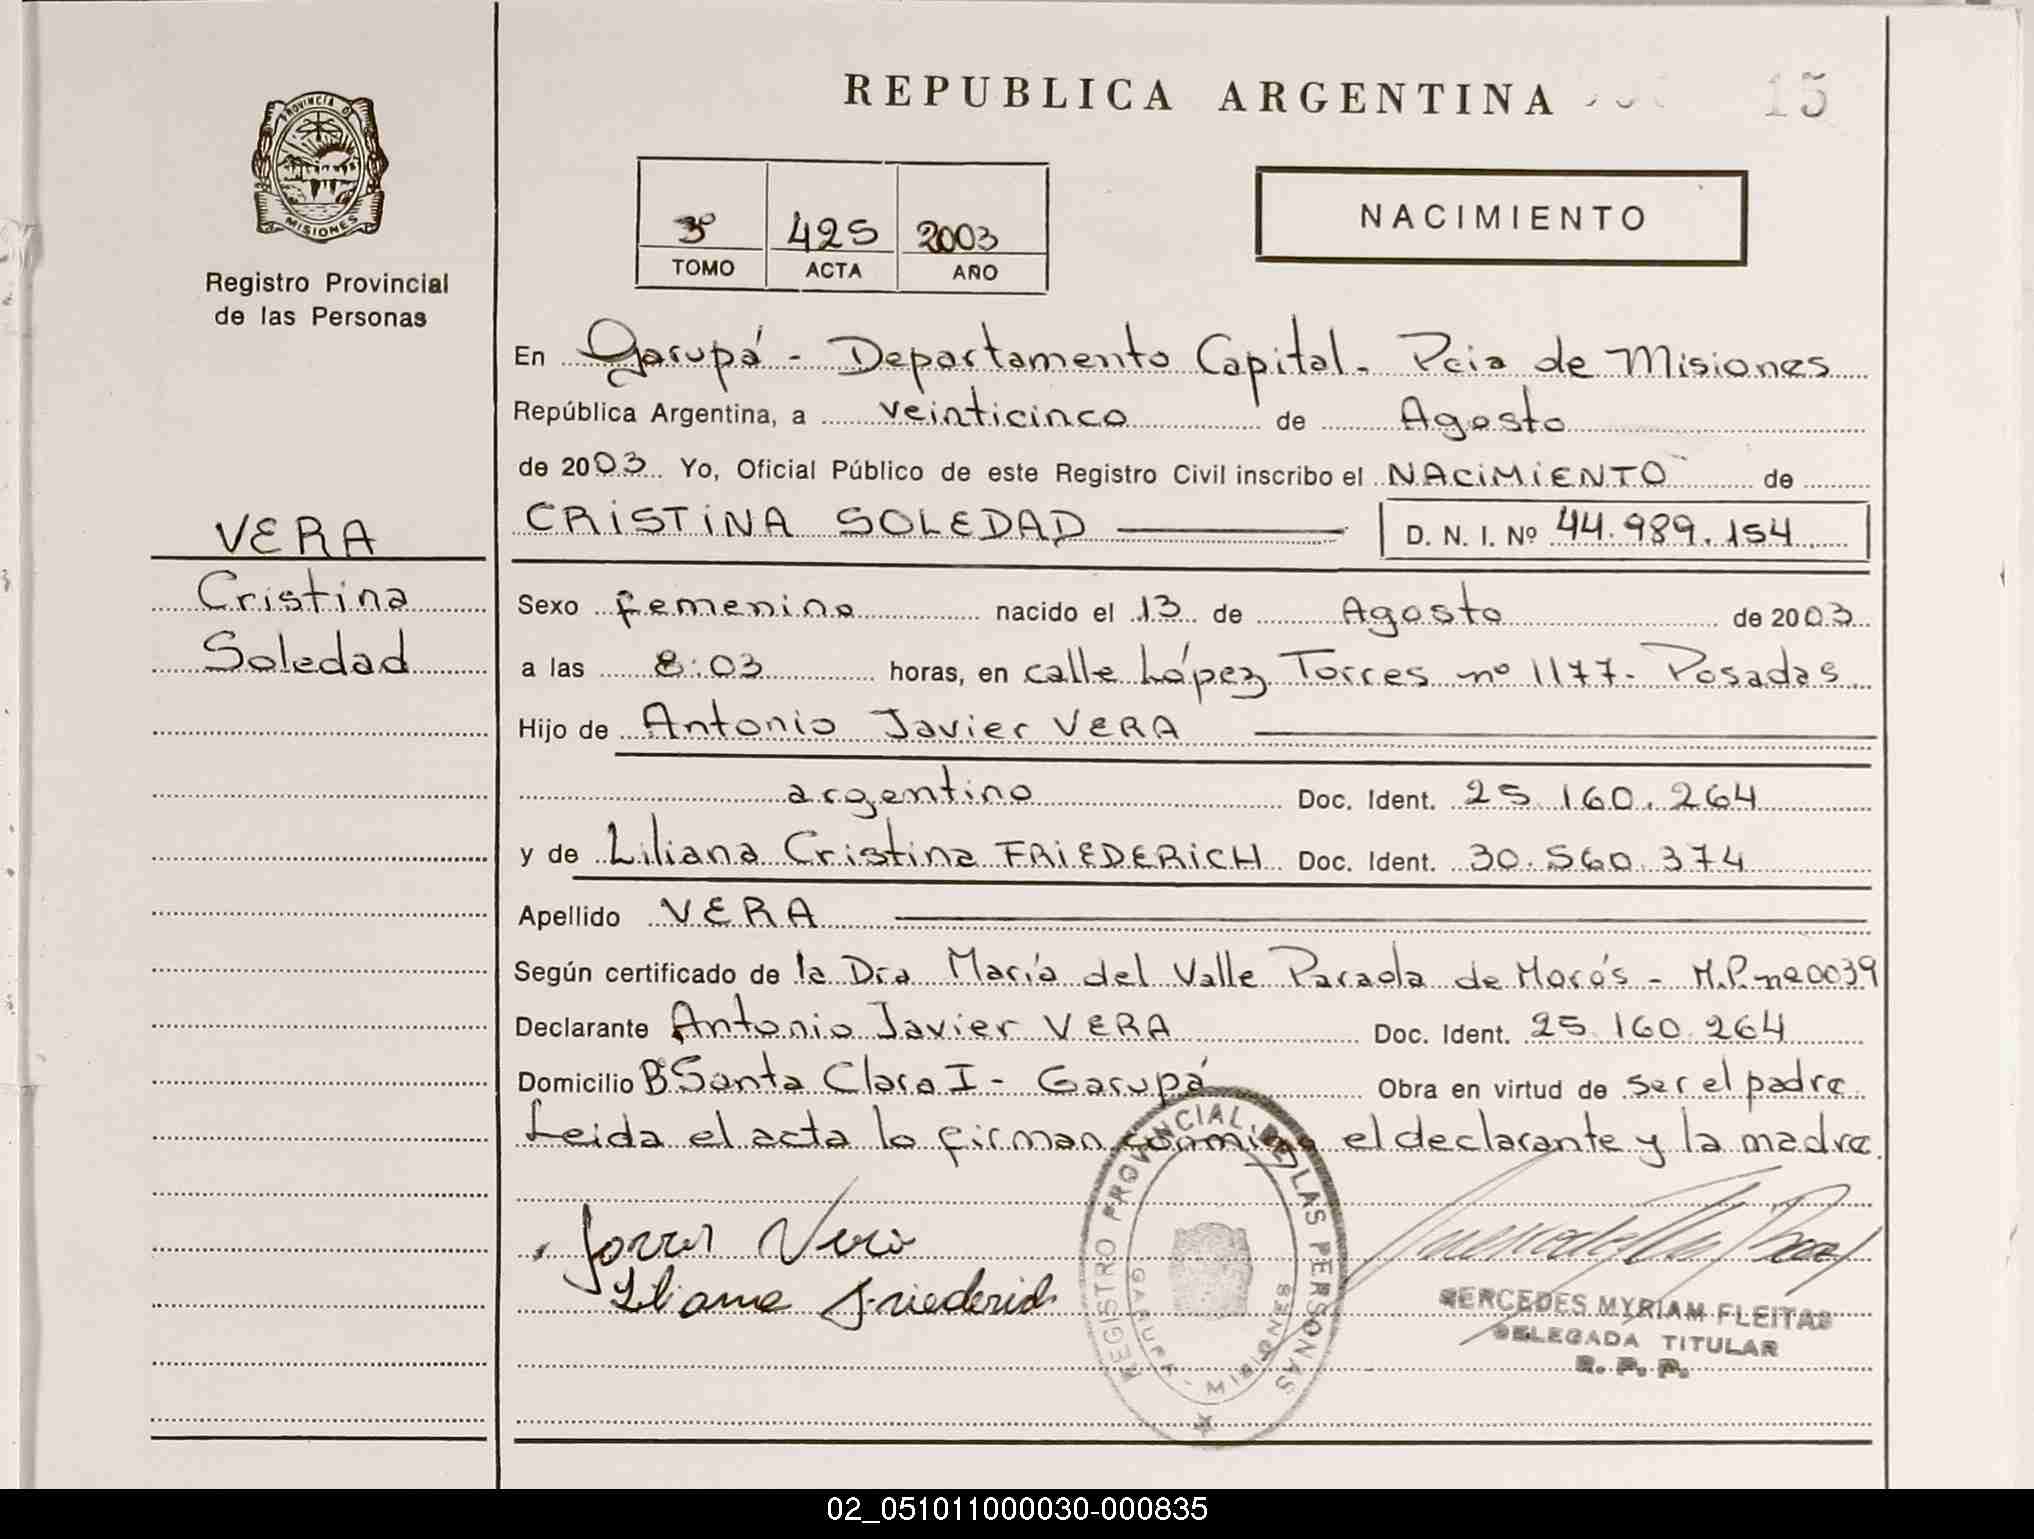 REPUBLICA ARGENTINA
15
PROVINCIA DE
MISIONES
Registro Provincial
de las Personas
3º 425 2003
TOMO ACTA AÑO
NACIMIENTO
En Garupá - Departamento Capital. Pcia de Misiones
República Argentina, a veinticinco de Agosto
de 2003 Yo, Oficial Público de este Registro Civil inscribo el NACIMIENTO de
CRISTINA SOLEDAD D. N. I. Nº 44.989.154
VERA
Cristina
Soledad
Sexo femenino nacido el 13 de Agosto de 2003
a las 8:03 horas, en calle López Torres nº 1177- Posadas
Hijo de Antonio Javier VERA
argentino Doc. Ident. 25.160.264
y de Liliana Cristina FRIEDERICH Doc. Ident. 30.560.374
Apellido VERA
Según certificado de la Dra María del Valle de - M.P. nº 0039
Declarante Antonio Javier VERA Doc. Ident. 25.160.264
Domicilio Bº Santa Clara I - Garupá Obra en virtud de ser el padre
Leida el acta lo firman conmigo el declarante y la madre.
Vera
Liliana Friederich
REGISTRO PROVINCIAL DE LAS PERSONAS
GARUPA - MISIONES
MERCEDES MYRIAM FLEITAS
DELEGADA TITULAR
R. P. P.
02_051011000030-000835